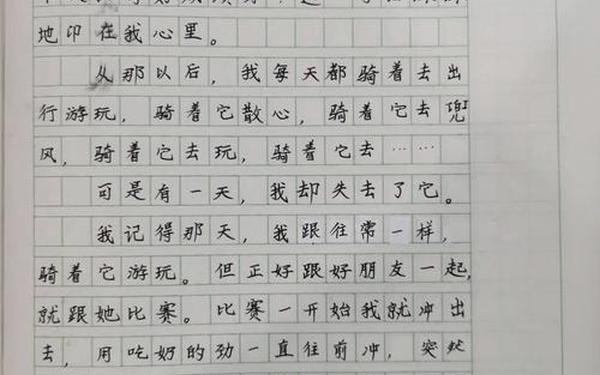 地印在我心里。
从那以后，我每天都骑着去出
行游玩，骑着它散心，骑着它去兜
风，骑着它去玩，骑着它去……
可是有一天，我却失去了它。
我记得那天，我跟往常一样，
骑着它游玩。但正好跟好朋友一起，
就跟她比赛。比赛一开始我就冲出
去，用吃奶的劲一直往前冲，突然